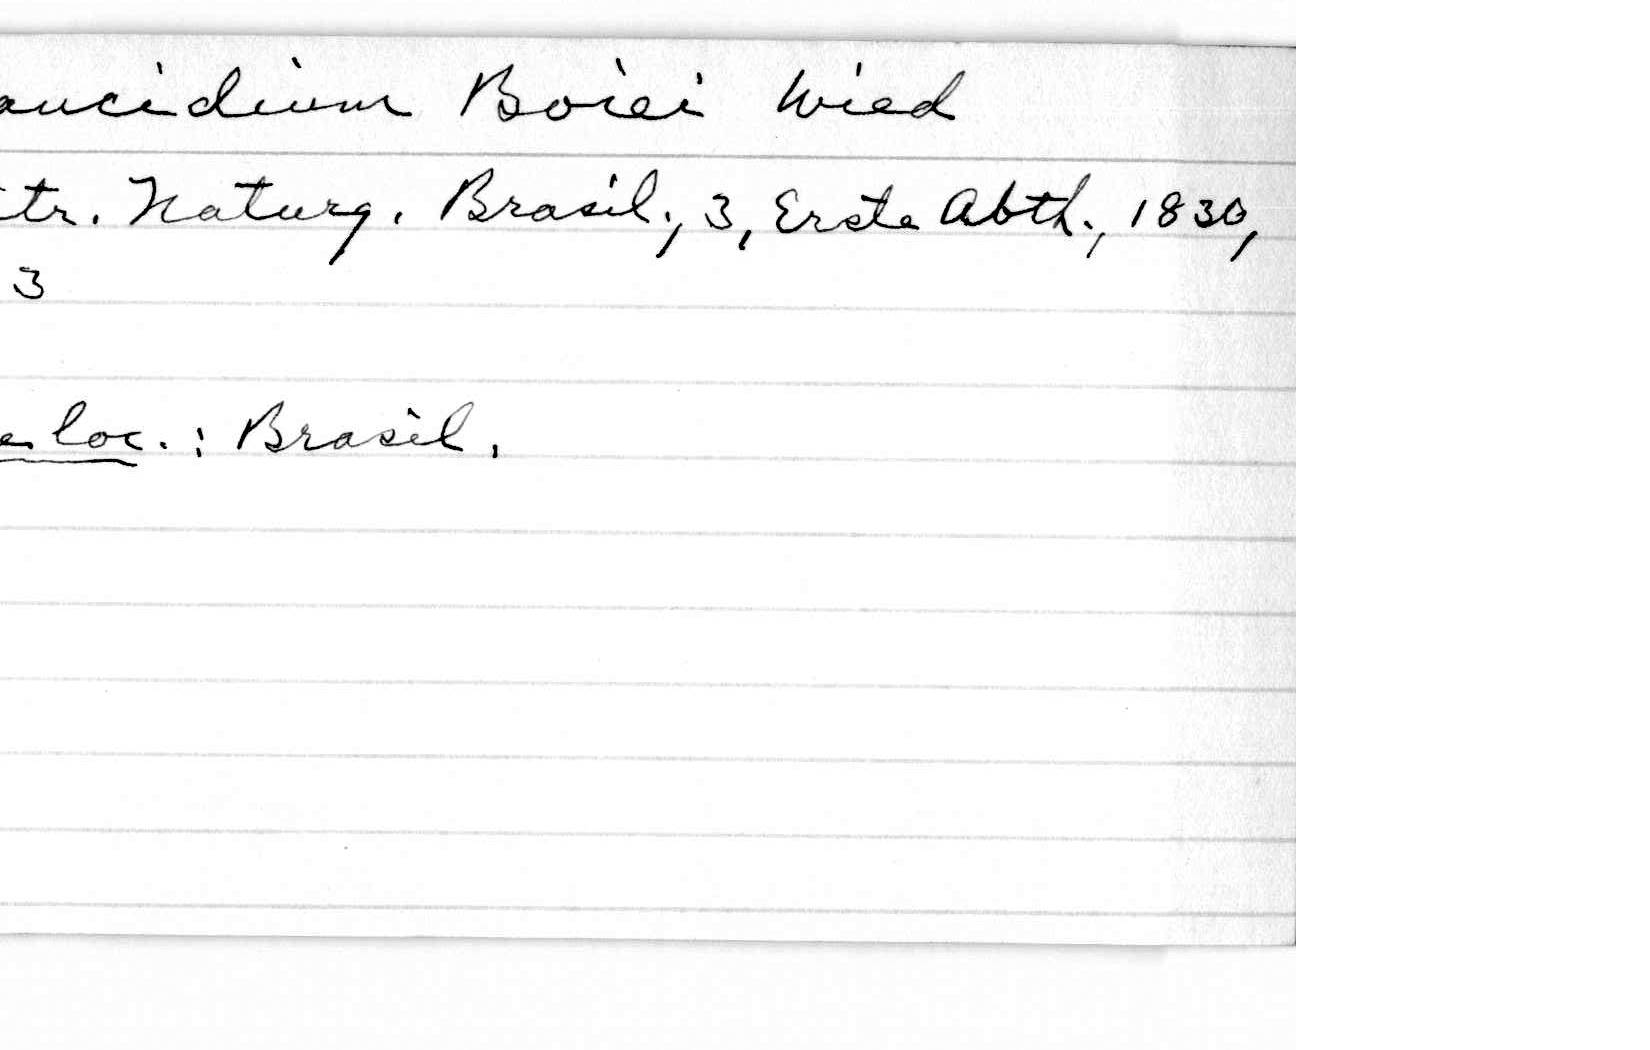 aucidium Boiei Wied
tr. Naturg. Brasil., 3, Erste Abth., 1830,
3
e loc.: Brasil.